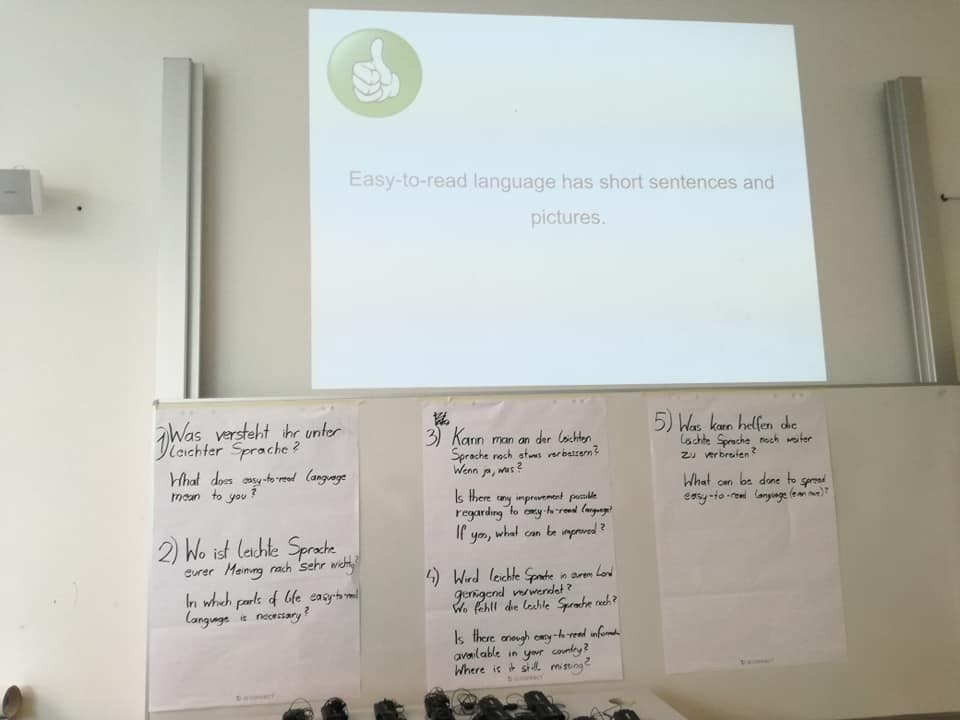 Easy-to-read language has short sentences and
pictures.
1) Was versteht ihr unter
Leichter Sprache?
What does easy-to-read language
mean to you?
2) Wo ist leichte Sprache
eurer Meinung nach sehr wichtig?
In which parts of life easy-to-read
language is necessary?
3) Kann man an der leichten
Sprache noch etwas verbessern?
Wenn ja, was?
Is there any improvement possible
regarding to easy-to-read language?
If yes, what can be improved?
4) Wird leichte Sprache in eurem Land
genügend verwendet?
Wo fehlt die leichte Sprache noch?
Is there enough easy-to-read
available in your country?
Where is it still missing?
5) Was kann helfen die
leichte Sprache noch weiter
zu verbreiten?
What can be done to spread
easy-to-read language (even more)?